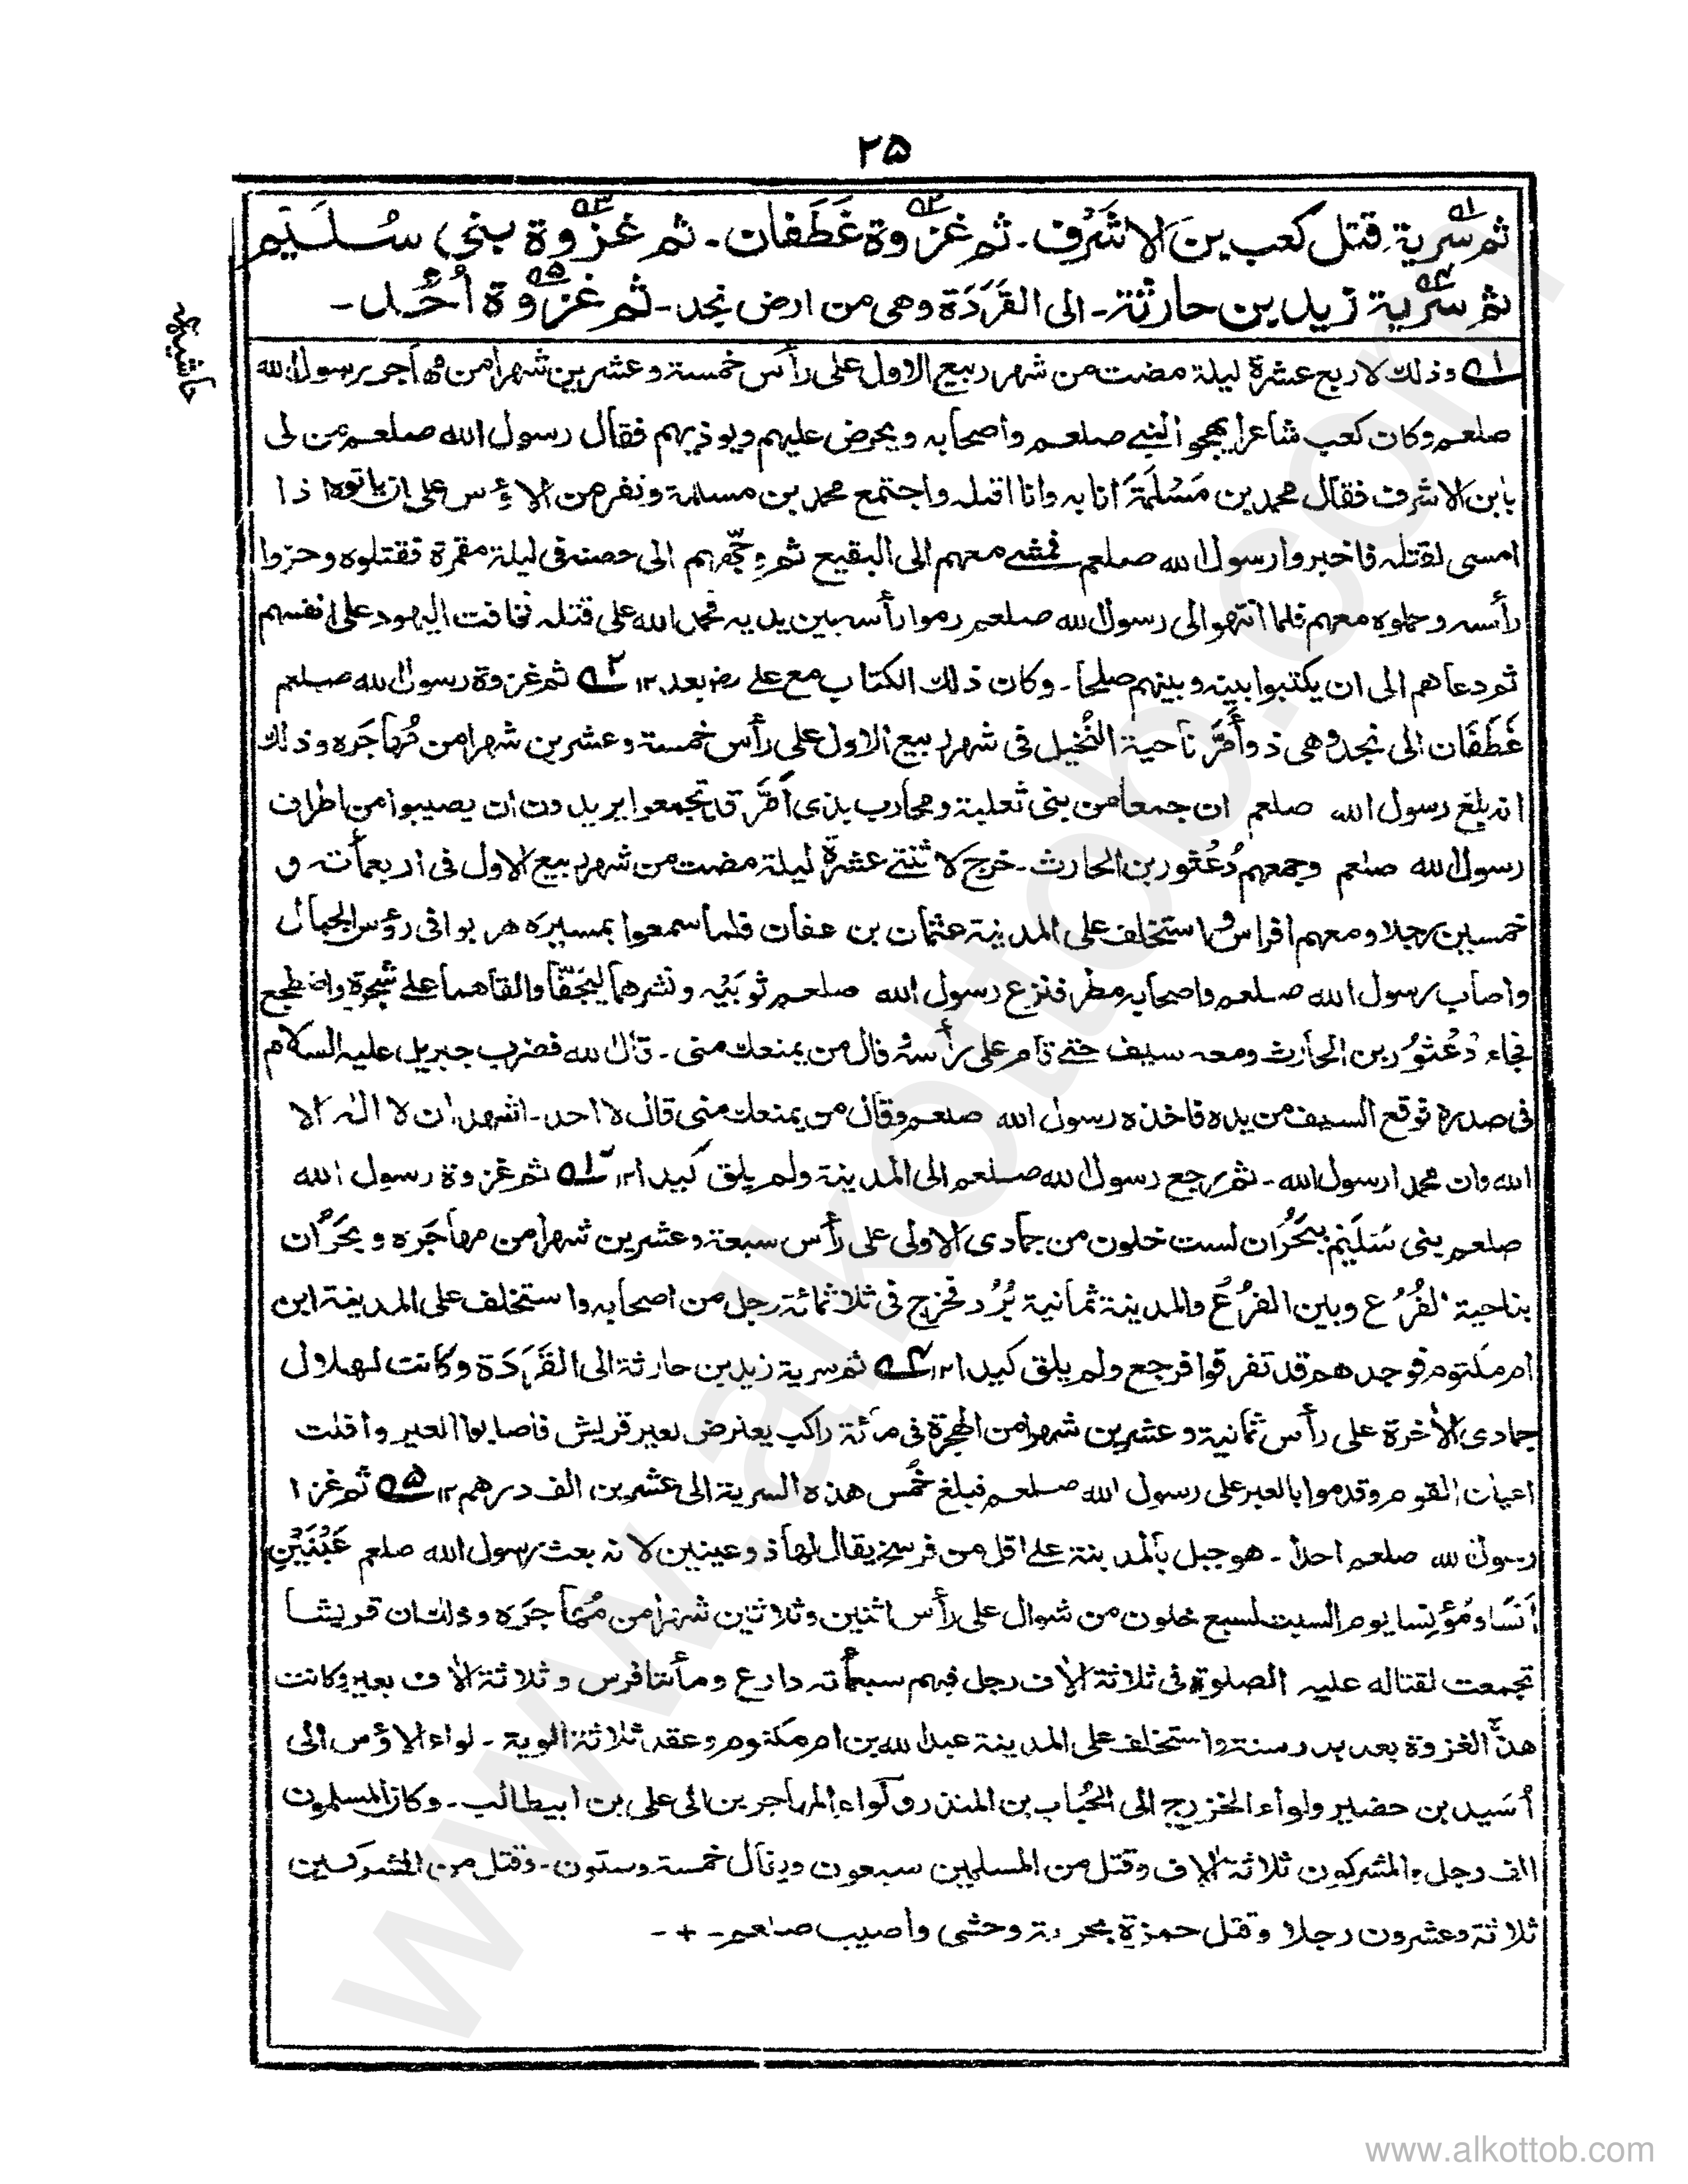 ۲۵
ثم سرية قتل كعب بن الاشرف ـ ثم غزوة غَطَفان ـ ثم غزوة بني سُلَيم
ثم سرية زيد بن حارثة ـ الى القَرَدَة وهى من ارض نجد ـ ثم غزوة اُحُد ـ
حاشيه
۱ وذلك لاربع عشرة ليلة مضت من شهر ربيع الاول على رأس خمسة وعشرين شهرا من مهاجر رسول الله
صلعم وكان كعب شاعرا يهجو النبى صلعم واصحابه ويحرض عليهم ويوذيهم فقال رسول الله صلعم من لى
بابن الاشرف فقال محمد بن مَسْلَمَة انا به وانا اقتله واجتمع محمد بن مسلمة ونفر من الاؤس على ان ياتوه اذا
امسى لقتله فاخبروا رسول الله صلعم فمشے معهم الى البقيع ثم وجّههم الى حصنه فى ليلة مقمرة فقتلوه وحزوا
رأسه وحملوه معهم فلما انتهو الى رسول الله صلعم رموا رأسه بين يديه فحمد الله على قتله فخافت اليهود على انفسهم
ثم دعاهم الى ان يكتبوا بينه وبينهم صلحا ـ وكان ذلك الكتاب مع على رض بعد ۱۲ ۲ ثم غزوة رسول الله صلعم
غَطَفَان الى نجد وهى ذو أَمَرّ ناحية النُخيل فى شهر ربيع الاول على رأس خمسة وعشرين شهرا من مُهاجَره وذلك
انه بلغ رسول الله صلعم ان جمعا من بنى ثعلبة ومحارب بذى اَمَرّ قد تجمعوا يريدون ان يصيبوا من اطراف
رسول الله صلعم وجمعهم دُعْثور بن الحارث ـ خرج لاثنتے عشرة ليلة مضت من شهر ربيع الاول فى اربعمأته و
خمسين رجلا ومعهم افراس واستخلف على المدينة عثمان بن عفان فلما سمعوا بمسيره هربوا فى رؤس الجبال
واصاب رسول الله صلعم واصحابه مطر فنزع رسول الله صلعم ثوبَيْه ونشرهما ليجفّا والقاهما علے شجرة واضطجع
فجاء دُعْثُور بن الحارث ومعه سيف حتے قام على رأسه وقال من يمنعك منى ـ قال الله فضرب جبريل عليه السلام
فى صدره فوقع السيف من يده فاخذه رسول الله صلعم وقال من يمنعك منى قال لا احد ـ اشهد ان لا اله الا
الله وان محمدا رسول الله ـ ثم رجع رسول الله صلعم الى المدينة ولم يلق كيدا ۱۲ ۳ ثم غزوة رسول الله
صلعم بنى سَلَيْم ببَحُرَان لست خلون من جمادى الاولى على رأس سبعة وعشرين شهرا من مهاجَره وبحَرُان
بناحية الفُرُع وبين الفُرُع والمدينة ثمانية بُرُد فخرج فى ثلاثمائة رجل من اصحابه واستخلف على المدينة ابن
ام مكتوم فوجدهم قد تفرقوا فرجع ولم يلق كيدا ۱۲ ۴ ثم سرية زيد بن حارثة الى القَرَدَة وكانت لهلال
جمادى الأخرة على رأس ثمانية وعشرين شهرا من الهجرة فى مائة راكب يعترض لعير قريش فاصابوا العير وافلت
اعيان القوم وقدموا بالعير على رسول الله صلعم فبلغ خُمس هذه السرية الى عشرين الف درهم ۱۲ ۵ ثم غزا
رسول الله صلعم احدا ـ هو جبل بالمدينة علے اقل من فرسخ يقال لها ذو عينين لانه بعث رسول الله صلعم عَيْنَيْنِ
اَنَسًا ومُؤنِسًا يوم السبت لسبع خلون من شوال على رأس اثنين وثلاثين شهرا من مُهاجَرَه وذلك ان قريشا
تجمعت لقتاله عليه الصلوة فى ثلاثة الاف رجل فيهم سبعمأته دارع ومأتا فرس وثلاثة الاف بعير وكانت
هذه الغزوة بعد بدر سنة واستخلف على المدينة عبد الله بن ام مكتوم وعقد ثلاثة الوية ـ لواء الاؤس الى
اُسَيد بن حضير ولواء الخزرج الى الحُباب بن المنذر ولواء المهاجرين الى على بن ابيطالب ـ وكان المسلمون
الف رجل والمشركون ثلاثة الاف وقتل من المسلمين سبعون ويقال خمسة وستون ـ وقتل من المشركين
ثلاثة وعشرون رجلا وقتل حمزة بحربة وحشى واصيب صلعم ـ + ـ
www.alkottob.com
www.alkottob.com